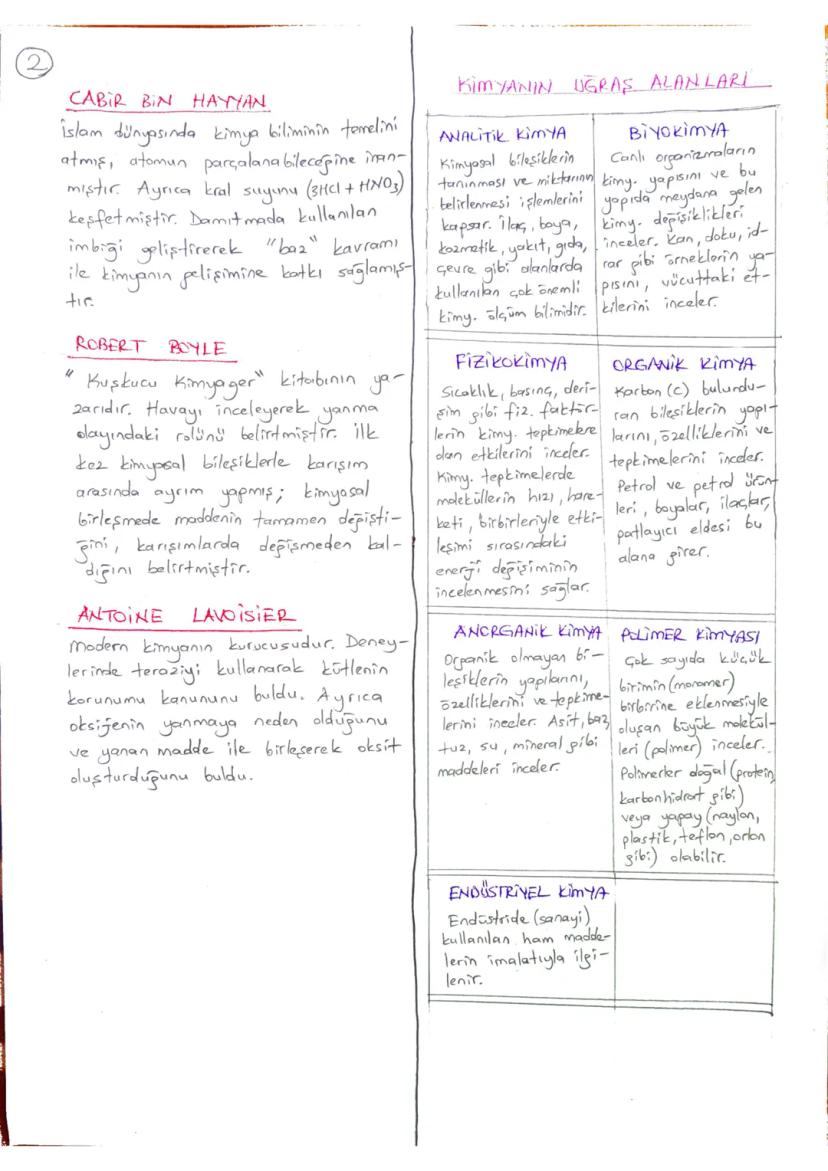 2
CABİR BİN HAYYAN
İslam dünyasında kimya biliminin temelini
atmış, atomun parçalanabileceğine inan-
mıştır. Ayrıca kral suyunu (3HCl + HNO3)
keşfetmiştir. Damıtmada kullanılan
imbiği geliştirerek "baz" kavramı
ile kimyanın gelişimine katkı sağlamış-
tır.
ROBERT BOYLE
"Kuşkucu Kimyager" kitabının ya-
zarıdır. Havayı inceleyerek yanma
olayındaki rolünü belirtmiştir. İlk
kez kimyasal bileşiklerle karışım
arasında ayrım yapmış; kimyasal
birleşmede maddenin tamamen değişti-
ğini, karışımlarda değişmeden kal-
dığını belirtmiştir.
ANTOİNE LAVOİSİER
Modern kimyanın kurucusudur. Deney-
lerinde teraziyi kullanarak kütlenin
korunumu kanununu buldu. Ayrıca
oksijenin yanmaya neden olduğunu
ve yanan madde ile birleşerek oksit
oluşturduğunu buldu.
KİMYANIN UĞRAŞ ALANLARI
ANALİTİK KİMYA
Kimyasal bileşiklerin
tanınması ve miktarının
belirlenmesi işlemlerini
kapsar. İlaç, boya,
kozmetik, yakıt, gıda,
çevre gibi alanlarda
kullanılan çok önemli
kimy. ölçüm bilimidir.
BİYOKİMYA
Canlı organizmaların
kimy. yapısını ve bu
yapıda meydana gelen
kimy. değişiklikleri
inceler. Kan, doku, id-
rar gibi örneklerin ya-
pısını, vücuttaki et-
kilerini inceler.
FİZİKOKİMYA
Sıcaklık, basınç, deri-
şim gibi fiz. faktör-
lerin kimy. tepkimelere
olan etkilerini inceler.
Kimy. tepkimelerde
moleküllerin hızı, hare-
keti, birbirleriyle etki-
leşimi sırasındaki
enerji değişiminin
incelenmesini sağlar.
ORGANİK KİMYA
Karbon (C) bulundu-
ran bileşiklerin yapı-
larını, özelliklerini ve
tepkimelerini inceler.
Petrol ve petrol ürün-
leri, boyalar, ilaçlar,
patlayıcı eldesi bu
alana girer.
ANORGANİK KİMYA
Organik olmayan bi-
leşiklerin yapılarını,
özelliklerini ve tepkime-
lerini inceler. Asit, baz,
tuz, su, mineral gibi
maddeleri inceler.
POLİMER KİMYASI
Çok sayıda küçük
birimin (monomer)
birbirine eklenmesiyle
oluşan büyük molekül-
leri (polimer) inceler.
Polimerler doğal (protein,
karbonhidrat gibi)
veya yapay (naylon,
plastik, teflon, orlon
gibi) olabilir.
ENDÜSTRİYEL KİMYA
Endüstride (sanayi)
kullanılan ham madde-
lerin imalatıyla ilgi-
lenir.